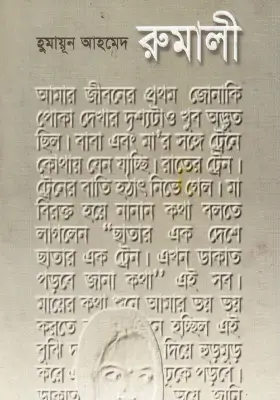 হুমায়ূন আহমেদ
রুমালী
আমার জীবনের প্রথম জোনাকি
থোকা দেখার দৃশ্যটাও খুব অদ্ভুত
ছিল। বাবা এবং মা'র সঙ্গে ট্রেনে
কোথায় যেন যাচ্ছি। রাতের ট্রেন।
ট্রেনের বাতি হঠাৎ নিভে গেল। মা
বিরক্ত হয়ে নানান কথা বলতে
লাগলেন “ছাতার এক দেশে
ছাতার এক ট্রেন। এখন ডাকাত
পড়বে জানা কথা” এই সব।
মায়ের কথা শুনে আমার ভয় ভয়
করতে হচ্ছিল এই
বুঝি দিয়ে হুড়মুড়
করে ঢুকে পড়বে।
ডাকাত হয়ে জানি